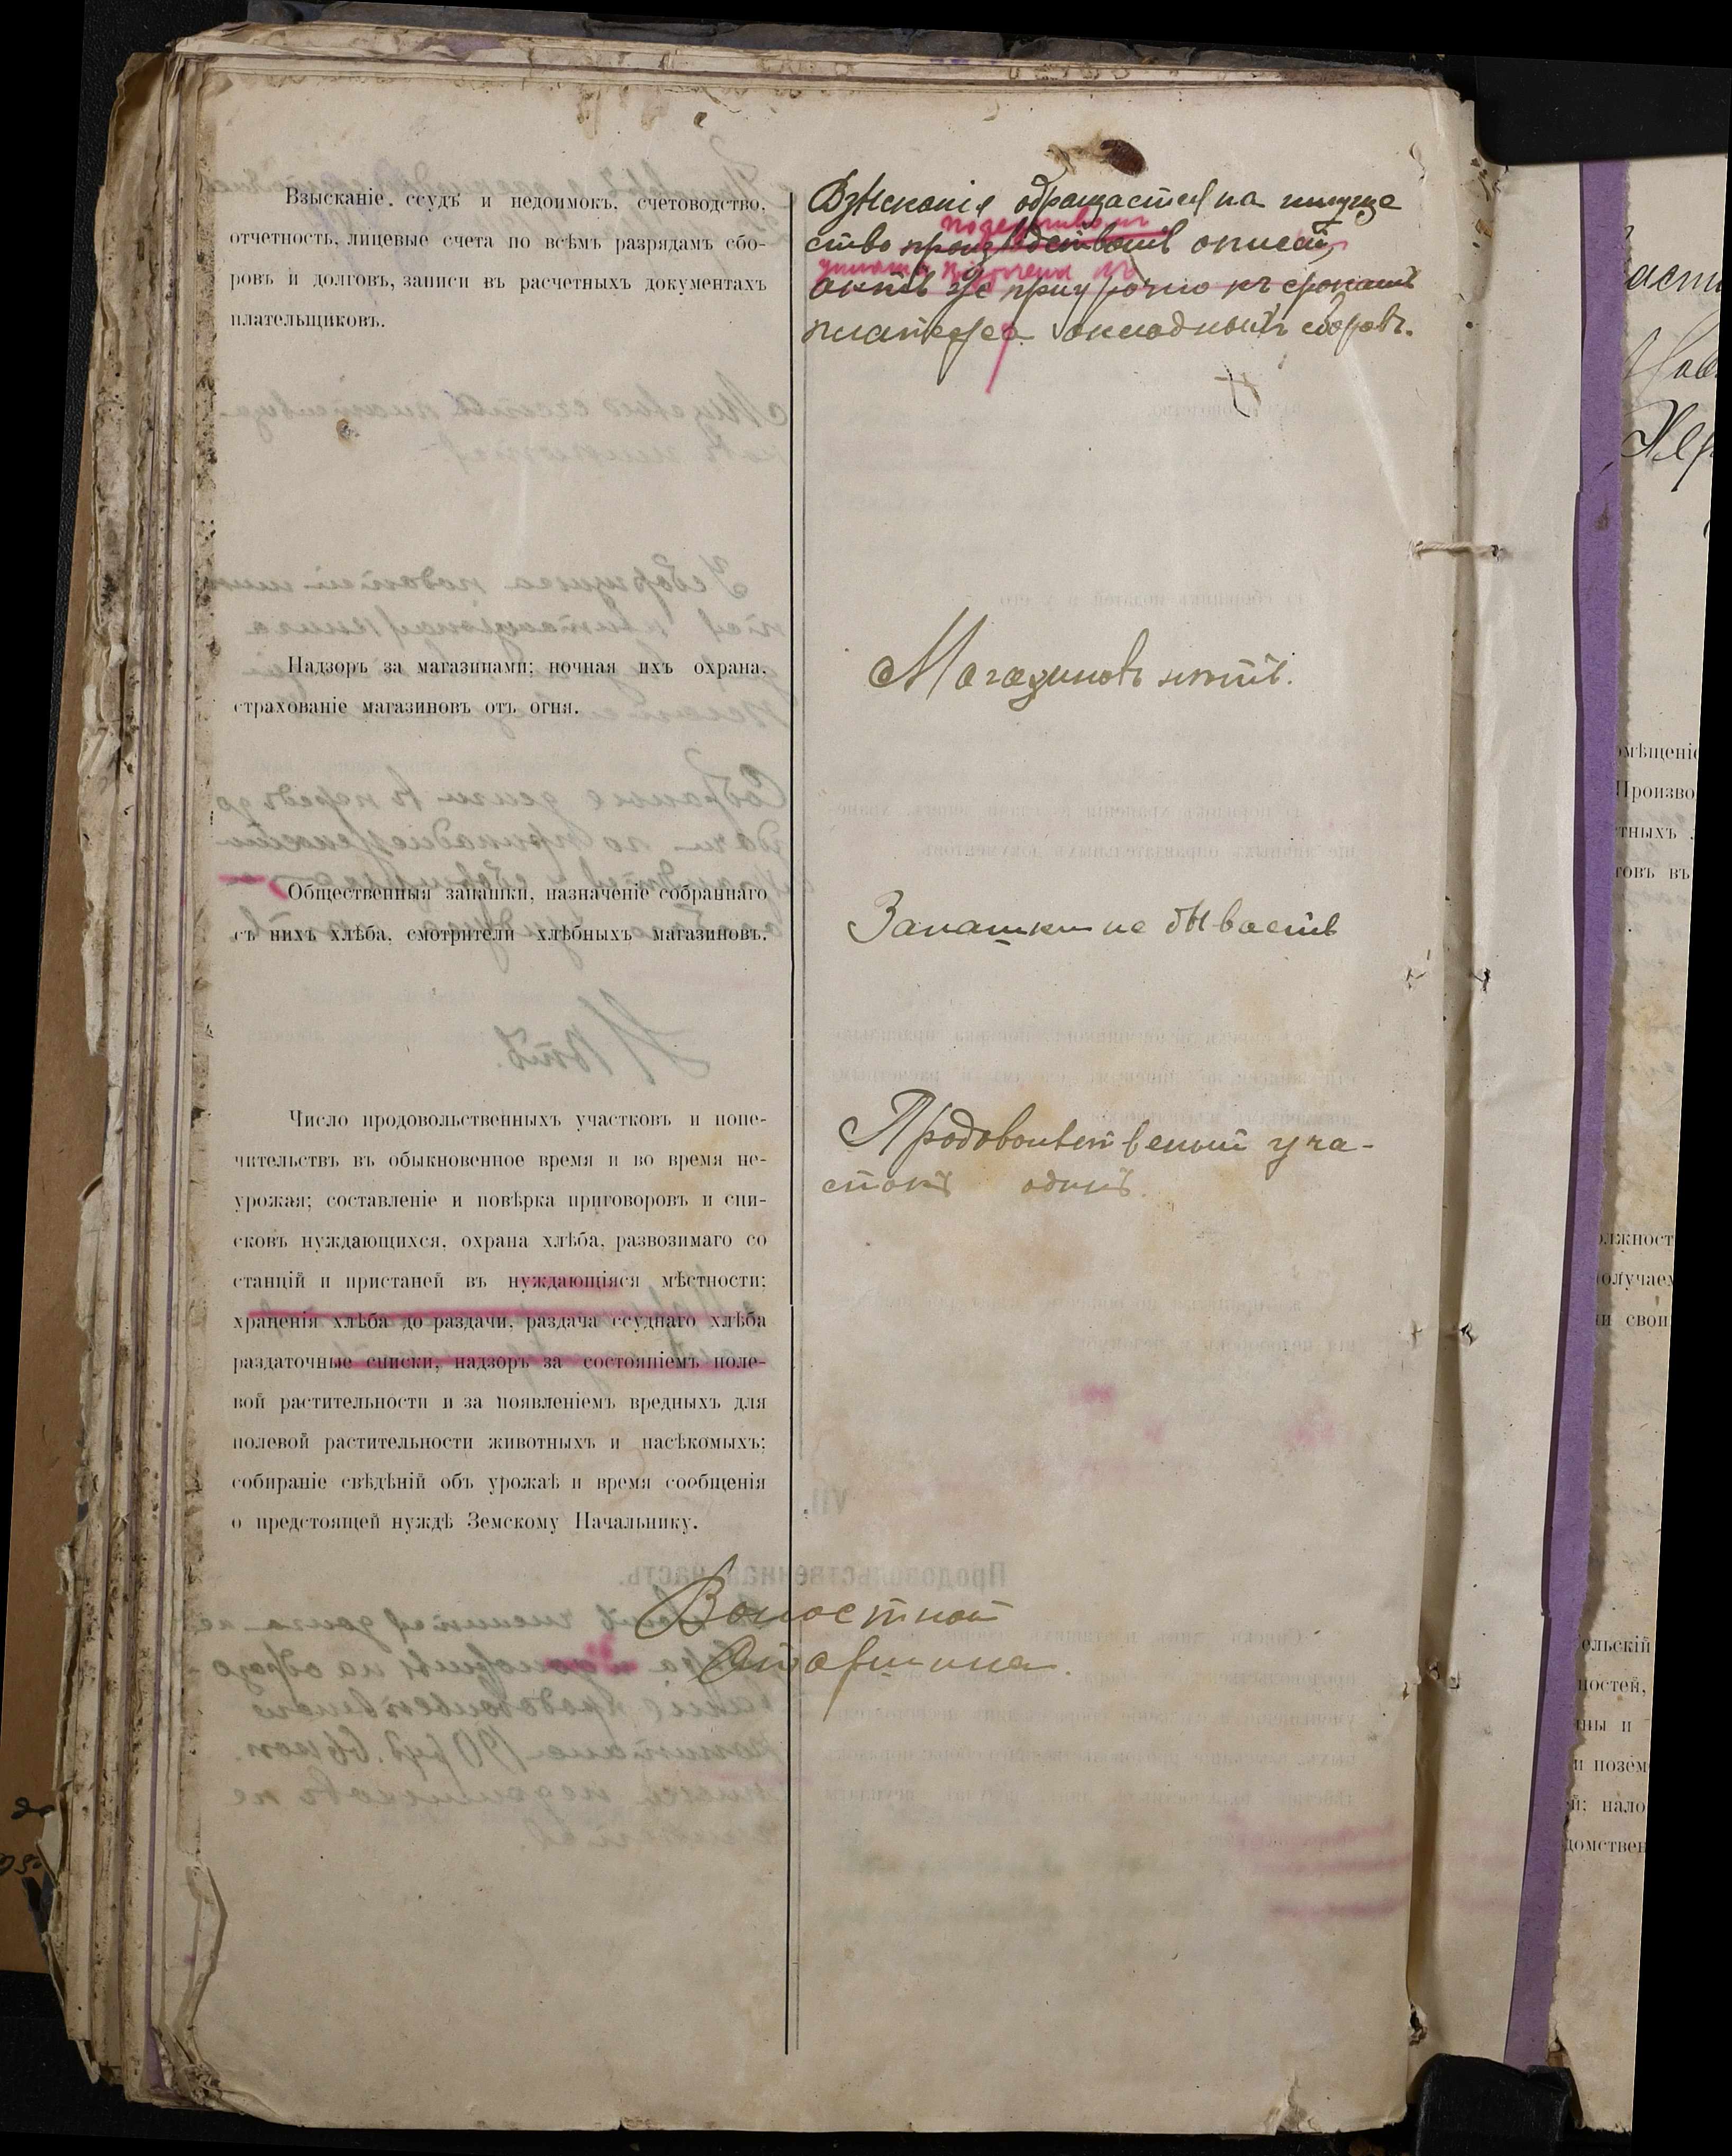 Взысканіе. ссудъ и недоимокъ, счетоводство,
отчетность, лицевые счета по всѣмъ разрядамъ сбо-
ровъ и долговъ, записи въ расчетныхъ документахъ
плательщиковъ.
Взысканія обращается на имуще
ство описан
къ срокамъ
платежа окладныхъ сборовъ.
Надзоръ за магазинами; ночная ихъ охрана,
страхованіе магазиновъ отъ огня.
Магазиновъ нѣтъ.
Общественныя запашки, назначеніе собраннаго
съ нихъ хлѣба, смотрители хлѣбныхъ магазиновъ.
Запашки не бываетъ
Число продовольственныхъ участковъ и попе-
чительствъ въ обыкновенное время и во время не-
урожая; составленіе и повѣрка приговоровъ и спи-
сковъ нуждающихся, охрана хлѣба, развозимаго со
станцій и пристаней въ нуждающіяся мѣстности;
храненія хлѣба до раздачи, раздача ссуднаго хлѣба
раздаточные списки, надзоръ за состояніемъ поле-
вой растительности и за появленіемъ вредныхъ для
полевой растительности животныхъ и насѣкомыхъ;
собираніе свѣдѣній объ урожаѣ и время сообщенія
о предстоящей нуждѣ Земскому Начальнику.
Продовольственый уча-
стокъ одинъ.
Волостной
Старшина.